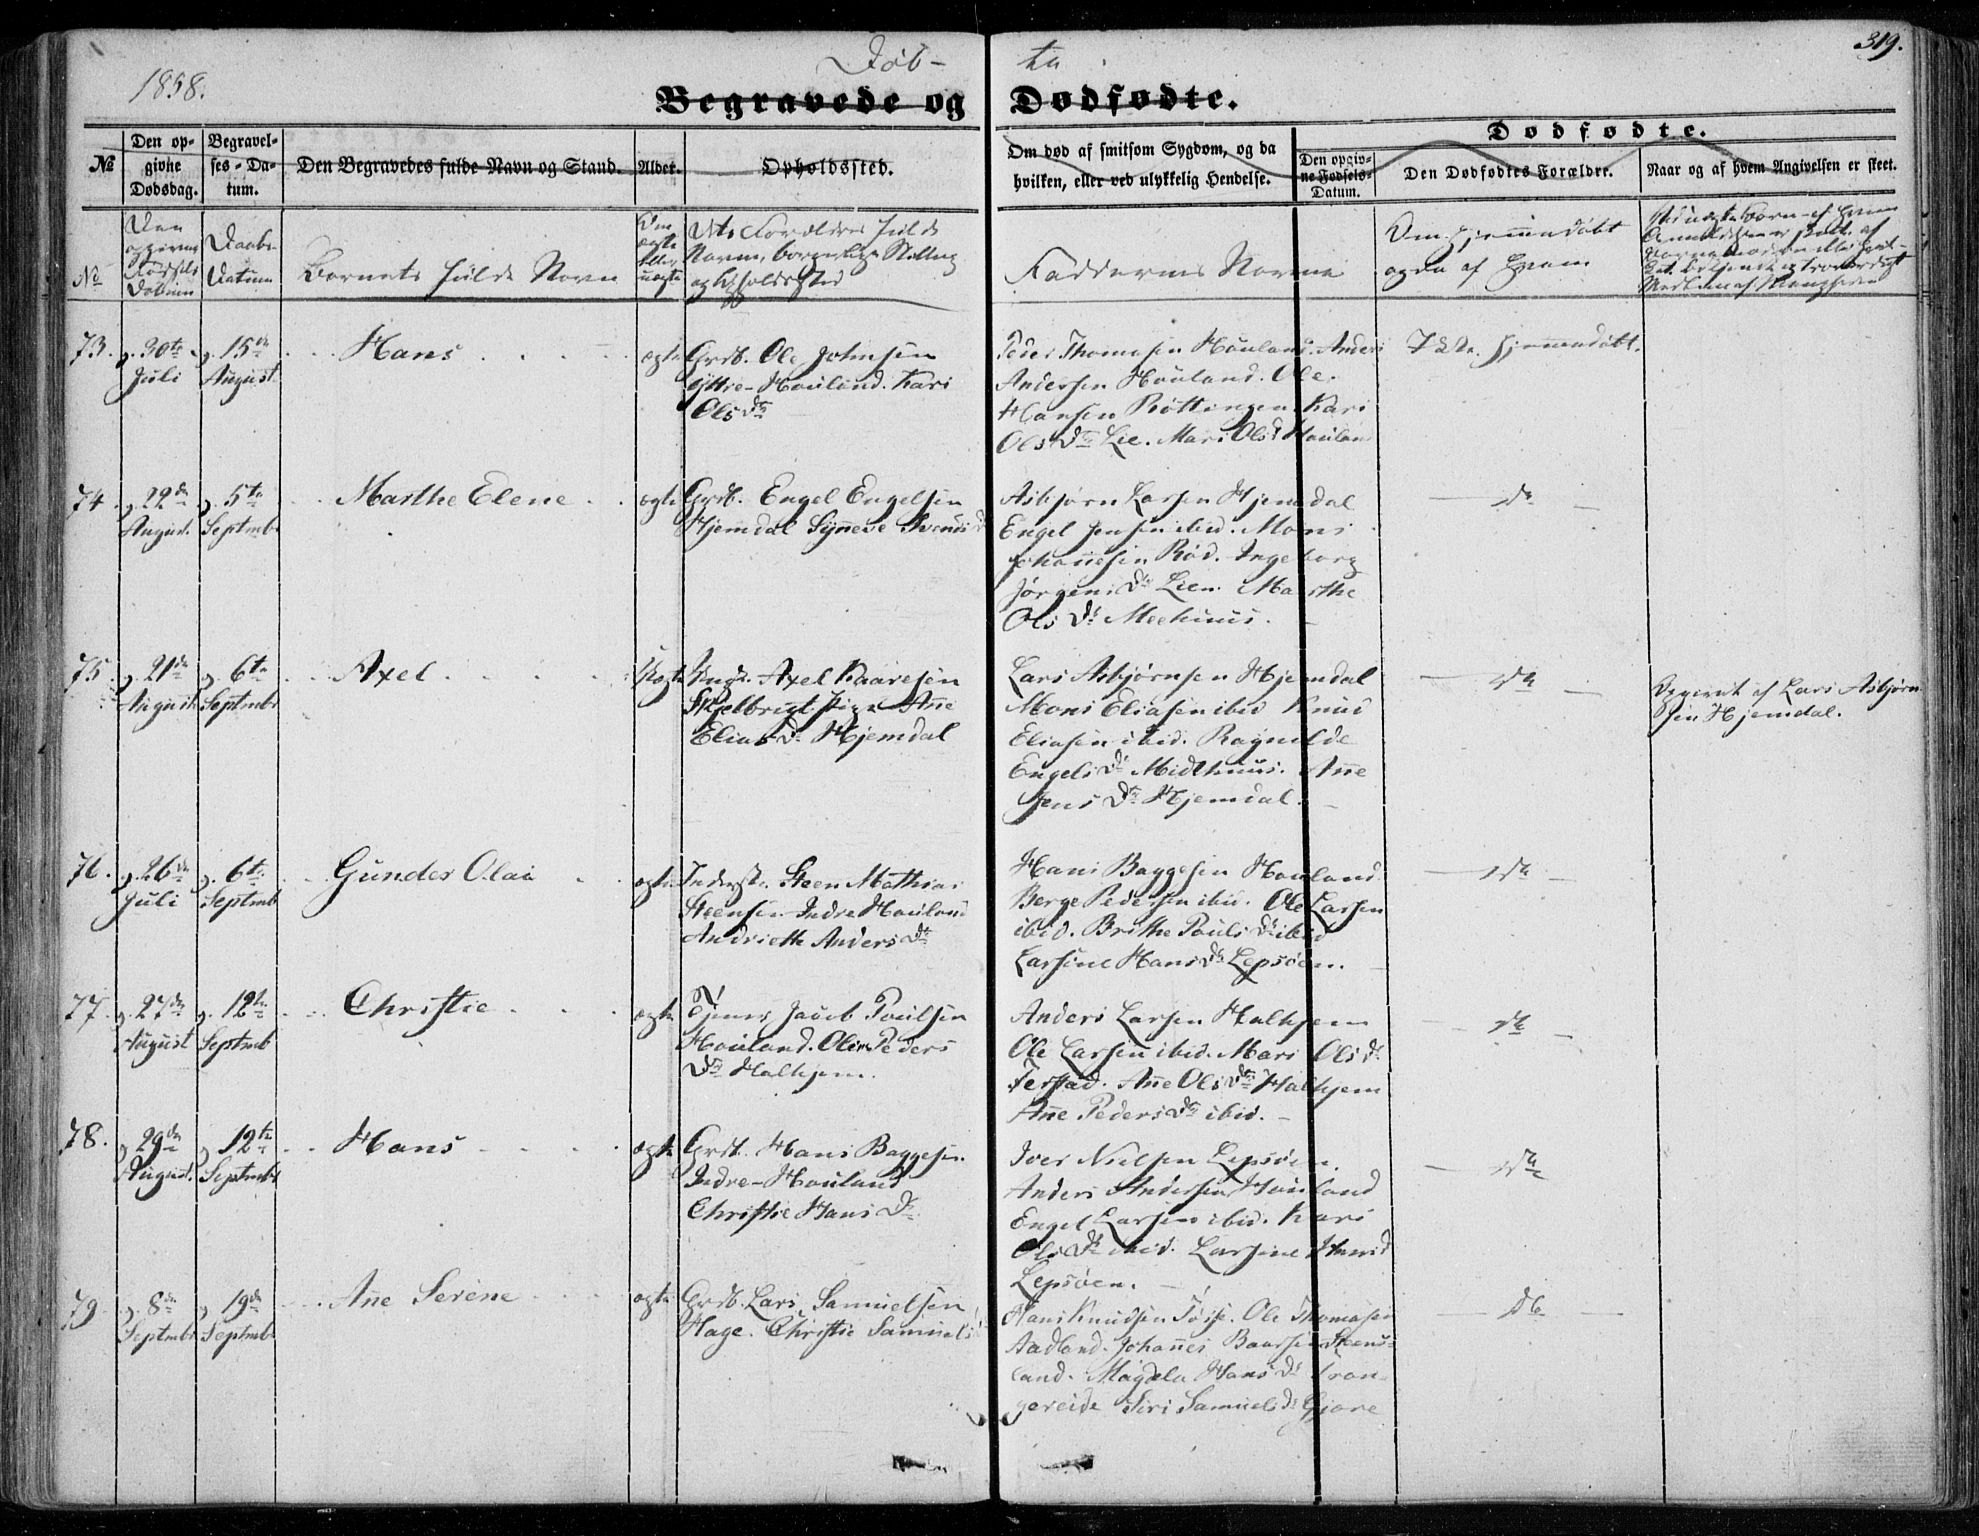 1858.
Døb-
te
319.
Begravede og
Dødfødte.
№
Den op-
givne
Dødsdag.
Begravel-
ses-Da-
tum.
Den Begravedes fulde Navn og Stand.
Alder.
Opholdssted.
Om død af smitsom Sygdom, og da
hvilken, eller ved ulykkelig Hendelse.
Dødfødte.
Den opgiv-
ne Fødsels-
Datum.
Den Dødfødtes Forældre.
Naar og af hvem Angivelsen er skeet.
№
Den
opgivne
Fødsels
Datum
Daabs-
Datum
Barnets fulde Navn
Om
ægte
eller
uægte
Dets Forældres fulde
Navne, borgerlige Stilling
og Opholdssted
Faddernes Navne
Om hjemmedøbt
og da af hvem
73. d. 30te
Juli
d. 15de
August
Hans
ægte
Grdb. Ole Johnsen
Yttre-Houland. Kari
Ols Dtr
Peder Thomasen Houland. Anders
Andersen Houland. Ole
Hansen Röttingen. Kari
Ols Dtr Lie. Mari Ols D Houland
Ikke hjemmedøbt.
74. d. 22de
August.
d. 5te
Septmbr
Marthe Elene
ægte
Grdb. Engel Engelsen
Hjemdal Syñeve Svends D
Asbjørn Larsen Hjemdal
Engel Jensen ibid. Mons
Johañesen Röd. Ingeborg
Jørgens Dtr Lien. Marthe
Ols Dr
Do
75 d. 21de
August
d. 6te
Septmbr
Axel
Uægte
Ungk. Axel Kaaresen
Skjelbregt. Pige Añe
Elias Dr Hjemdal
Lars Asbjørnsen Hjemdal
Mons Eliasen ibid Knud
Eliasen ibid. Ragnilde
Engels Dr Midthuus. Añe
Jens Dtr Hjemdal.
Do
Opgivet af Lars Asbjørn-
sen Hjemdal.
76. d. 26de
Juli
d. 6te
Septmb
Gunder Olai
ægte
Inderst. Steen Mathias
Steensen Indre Houland
Andriette Anders Dtr
Hans Baggesen Houland
Berge Pedersen ibid. Ole Larsen
ibid. Brithe Pouls Dr ibid
Larsine Hans Dtr Lepsöen.
Do
77. d. 27de
August
d. 12te
Septmb
Christie
ægte
Tjener Jacob Poulsen
Houland. Oline Peders
Dtr Halhjem.
Anders Larsen Halhjem
Ole Larsen ibid. Mari Ols Dr
Añe Ols Dtr Halhjem
Añe Peders Dtr ibid.
Do
78. d. 29de
August.
d. 12te
Septmbr
Hans
ægte
Grdb. Hans Baggesen
Indre-Houland
Christie Hans Dr
Iver Nielsen Lepsöen.
Anders Andersen Houland
Engel Larsen ibid. Kari
Ols Dr ibid. Larsine Hans D
Lepsöen.
Do
79 d. 8de
Septmbr
d. 19de
Septmbr
Añe Serine
ægte
Grdb. Lars Samuelsen
Hage. Christie Samuels
Hans Knudsen Tøsse. Ole Thomasen
Aadland. Johañes Baarsen Steens-
land. Magdela Hans Dr Tran-
gereide Siri Samuels Dr Gjøre
Do